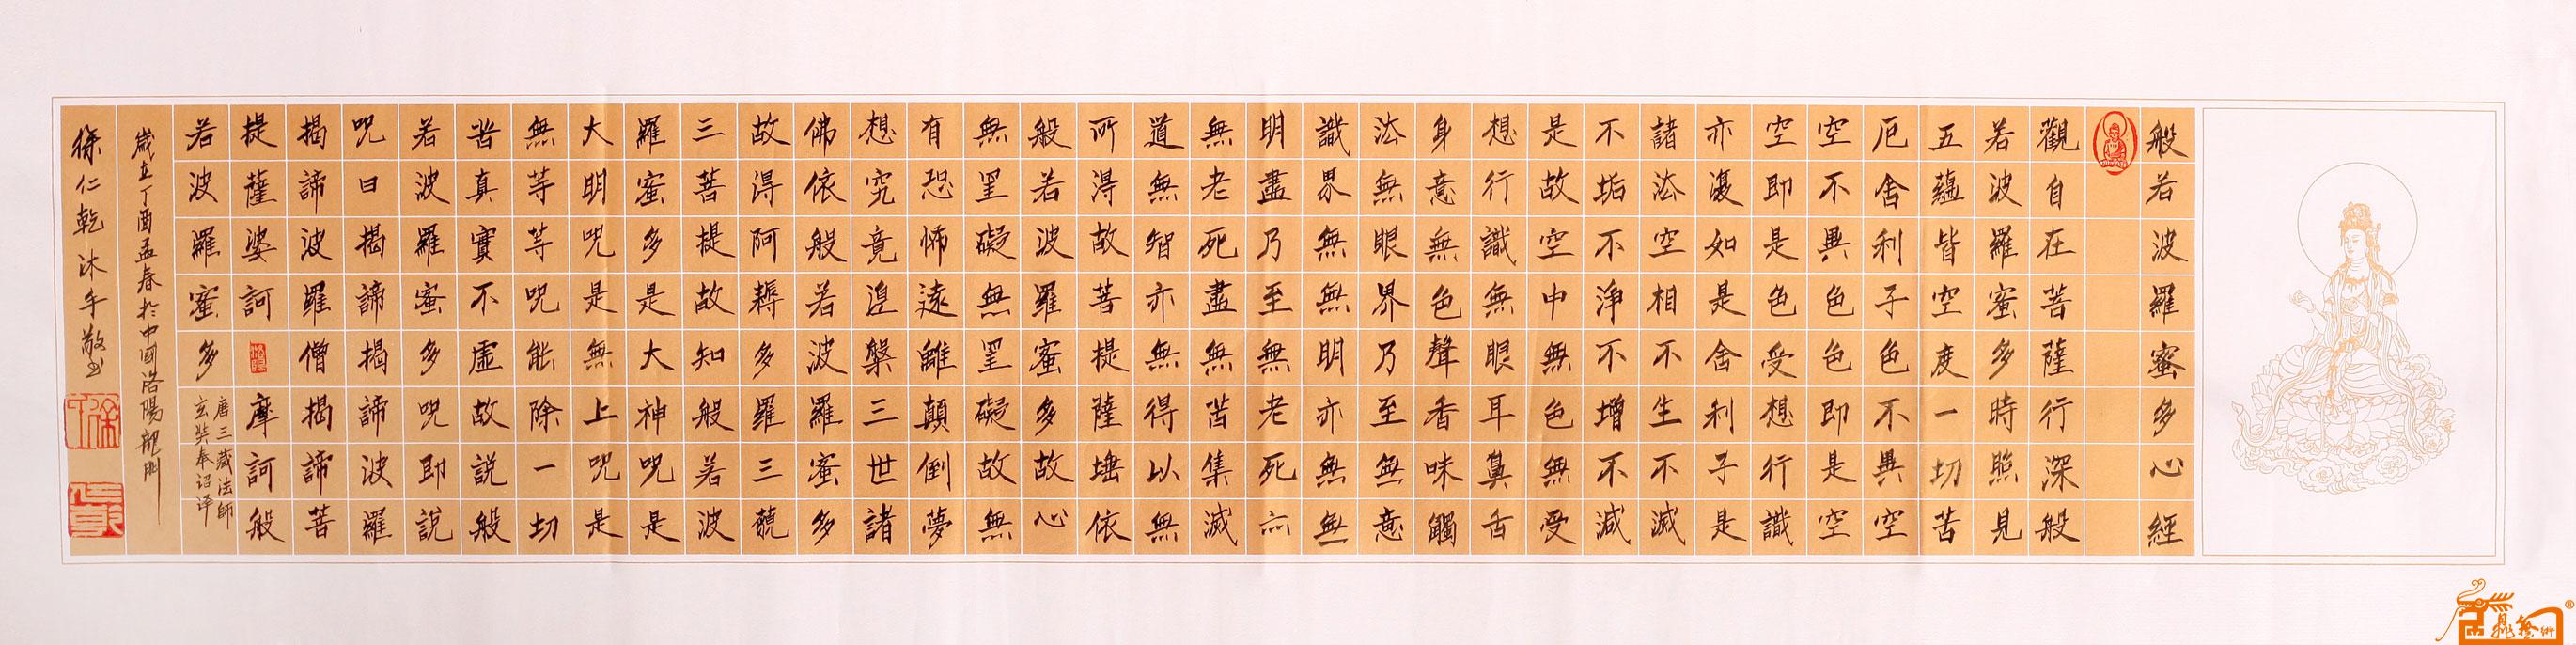 般若波羅蜜多心經
觀自在菩薩行深般
若波羅蜜多時照見
五蘊皆空度一切苦
厄舍利子色不異空
空不異色色即是空
空即是色受想行識
亦復如是舍利子是
諸法空相不生不滅
不垢不淨不增不減
是故空中無色無受
想行識無眼耳鼻舌
身意無色聲香味觸
法無眼界乃至無意
識界無無明亦無無
明盡乃至無老死亦
無老死盡無苦集滅
道無智亦無得以無
所得故菩提薩埵依
般若波羅蜜多故心
無罣礙無罣礙故無
有恐怖遠離顛倒夢
想究竟涅槃三世諸
佛依般若波羅蜜多
故得阿耨多羅三藐
三菩提故知般若波
羅蜜多是大神呪是
大明呪是無上呪是
無等等呪能除一切
苦真實不虛故說般
若波羅蜜多呪即說
呪曰揭諦揭諦波羅
揭諦波羅僧揭諦菩
提薩婆訶洛陽摩訶般
若波羅蜜多
唐三藏法師
玄奘奉诏译
歲在丁酉孟春於中國洛陽龍門
徐仁乾沐手敬书